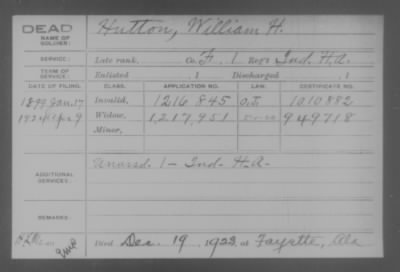 DEAD
NAME OF SOLDIER:
Hutton, William H.
SERVICE: Late rank, Co. F, 1 Reg't Ind. H.A.
TERM OF SERVICE: Enlisted , 1 Discharged , 1
DATE OF FILING. CLASS. APPLICATION NO. LAW. CERTIFICATE NO.
1899 Jan. 17 Invalid, 1216845 1010882
Widow, 1,217,951 949718
Minor,
ADDITIONAL SERVICES: Unassd. 1 - Ind. H.A.
REMARKS:
Died Dec. 19, 1923, at Fayette, Ala